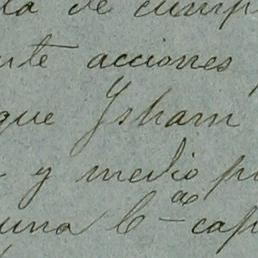 da de cump
nte acciones
que Isham
y medio p
una C^as cap